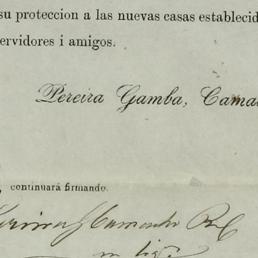 su proteccion a las nuevas casas establecid
ervidores i amigos.
Pereira Gamba, Cama
, continuará firmando.